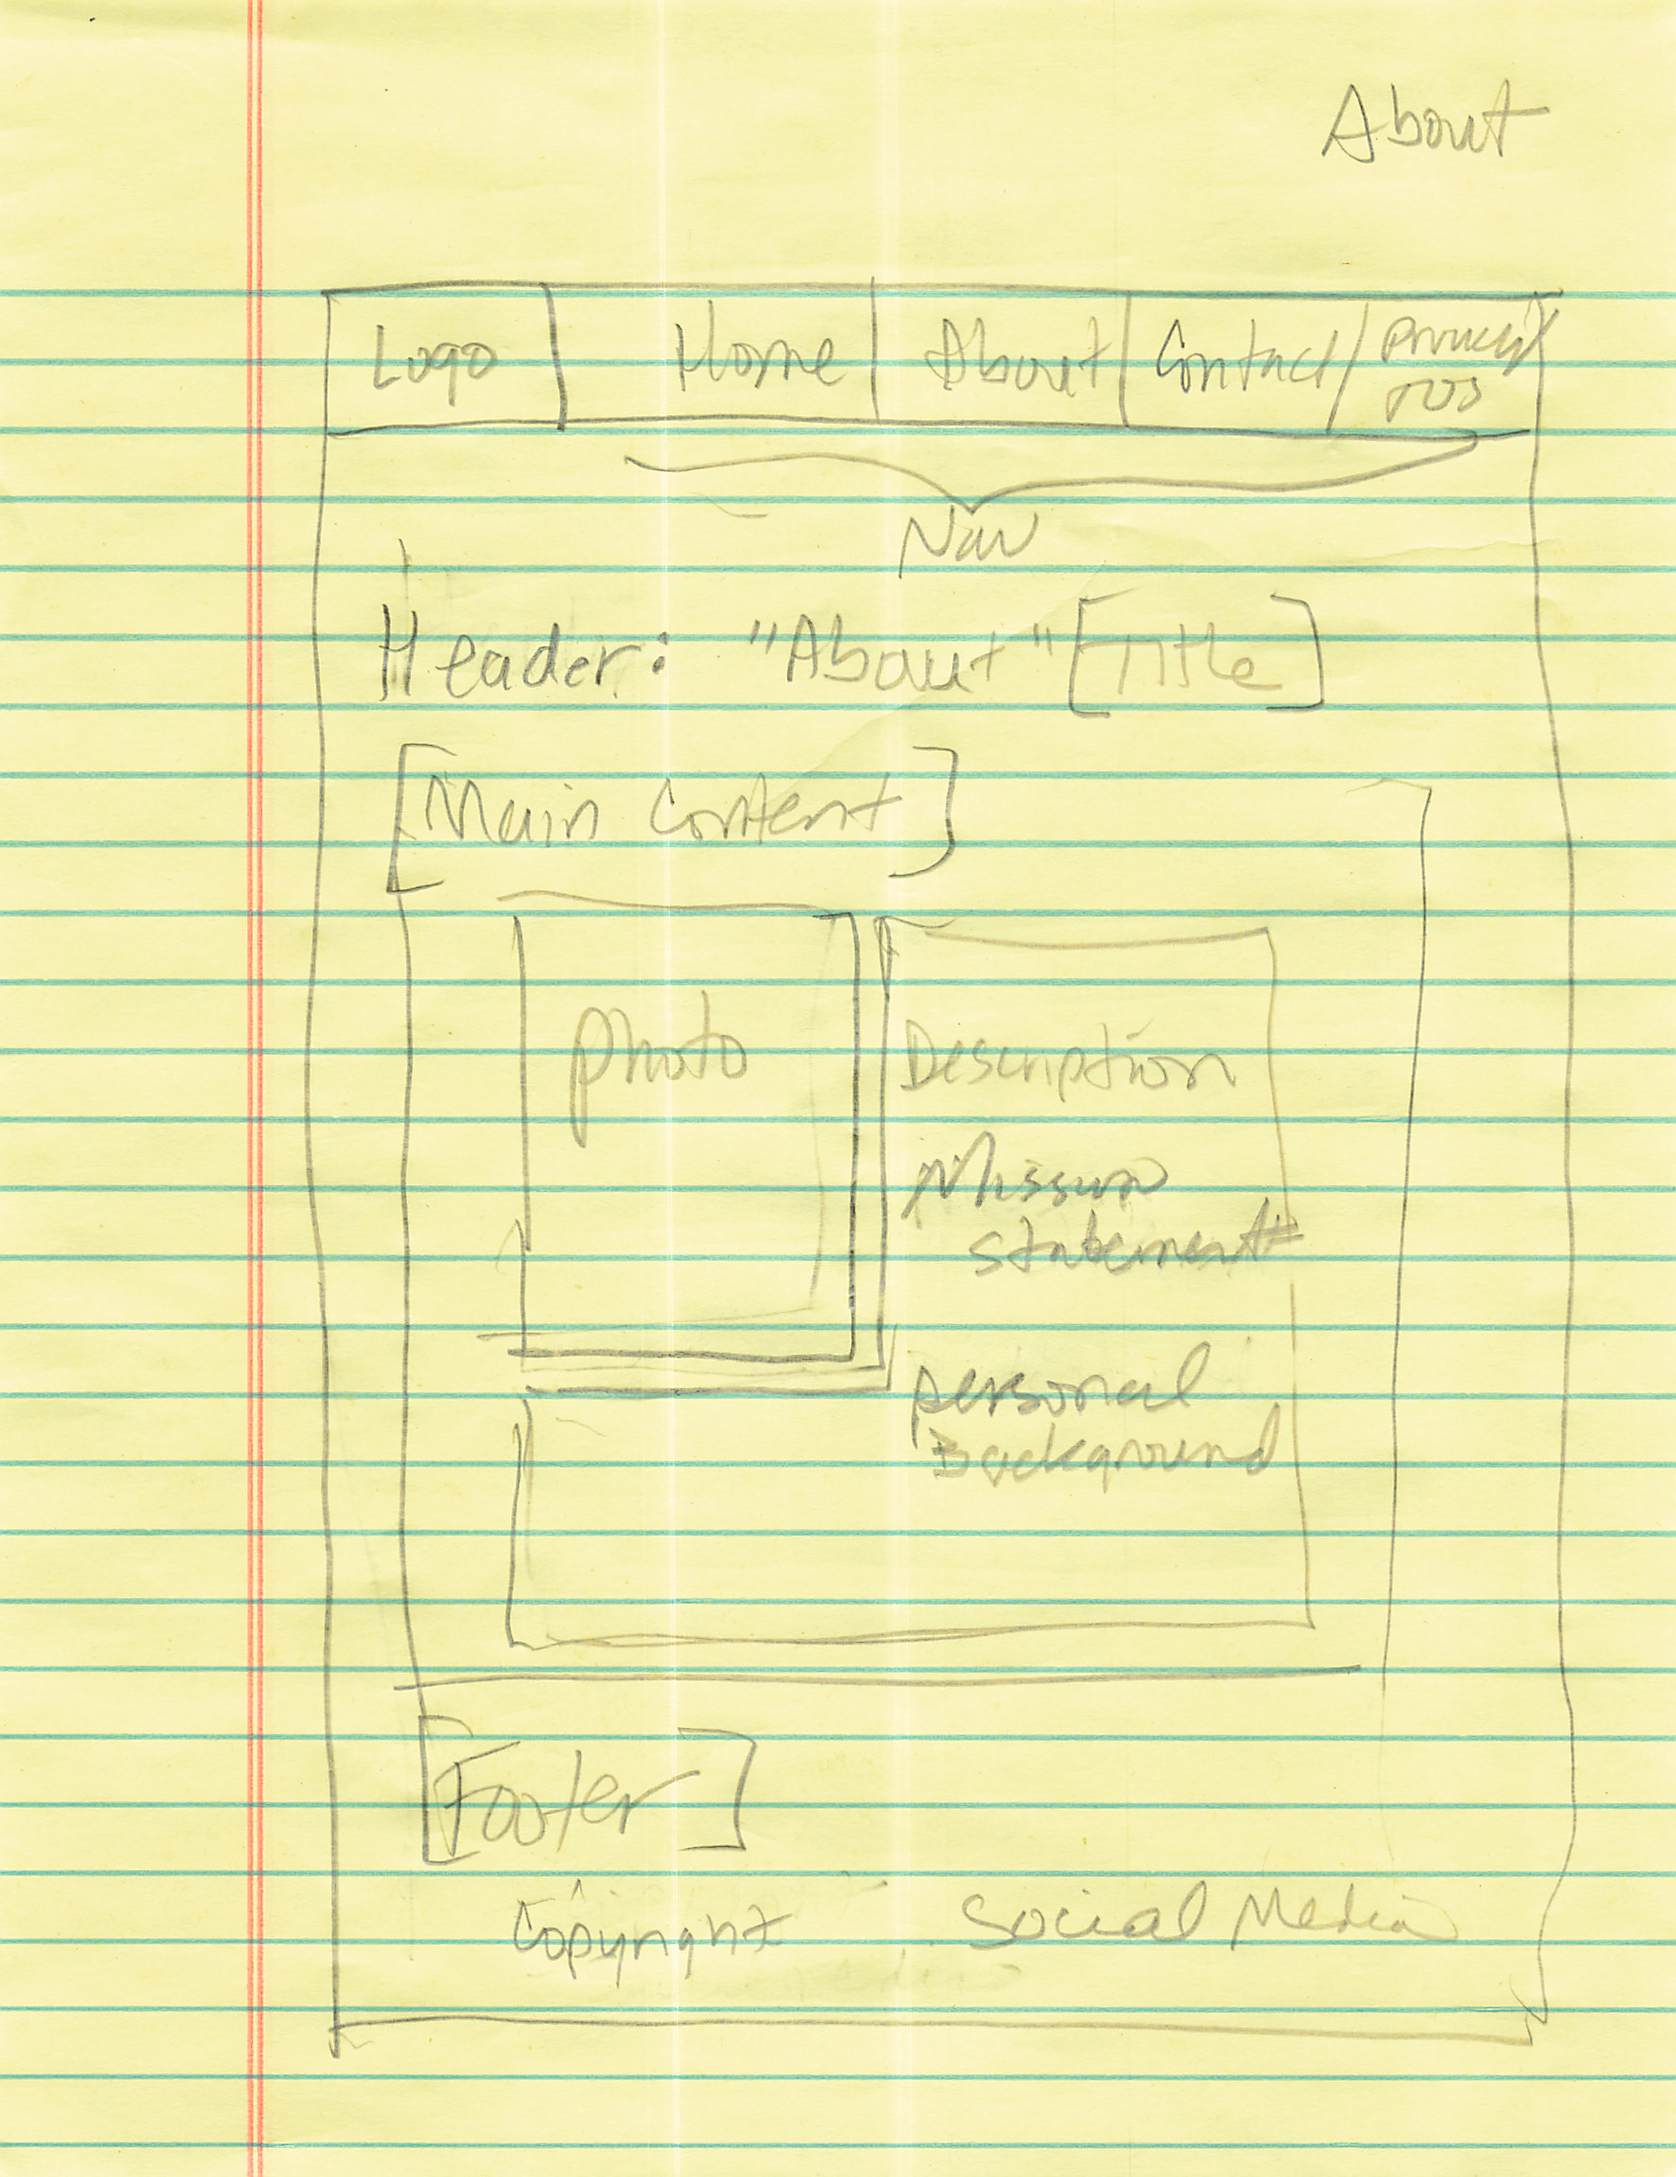 About
Logo Home About Contact Privacy
TOS
Nav
Header: "About" [Title]
[Main Content]
photo
Description
Mission
statement
personal
Background
[Footer]
Copyright Social Media